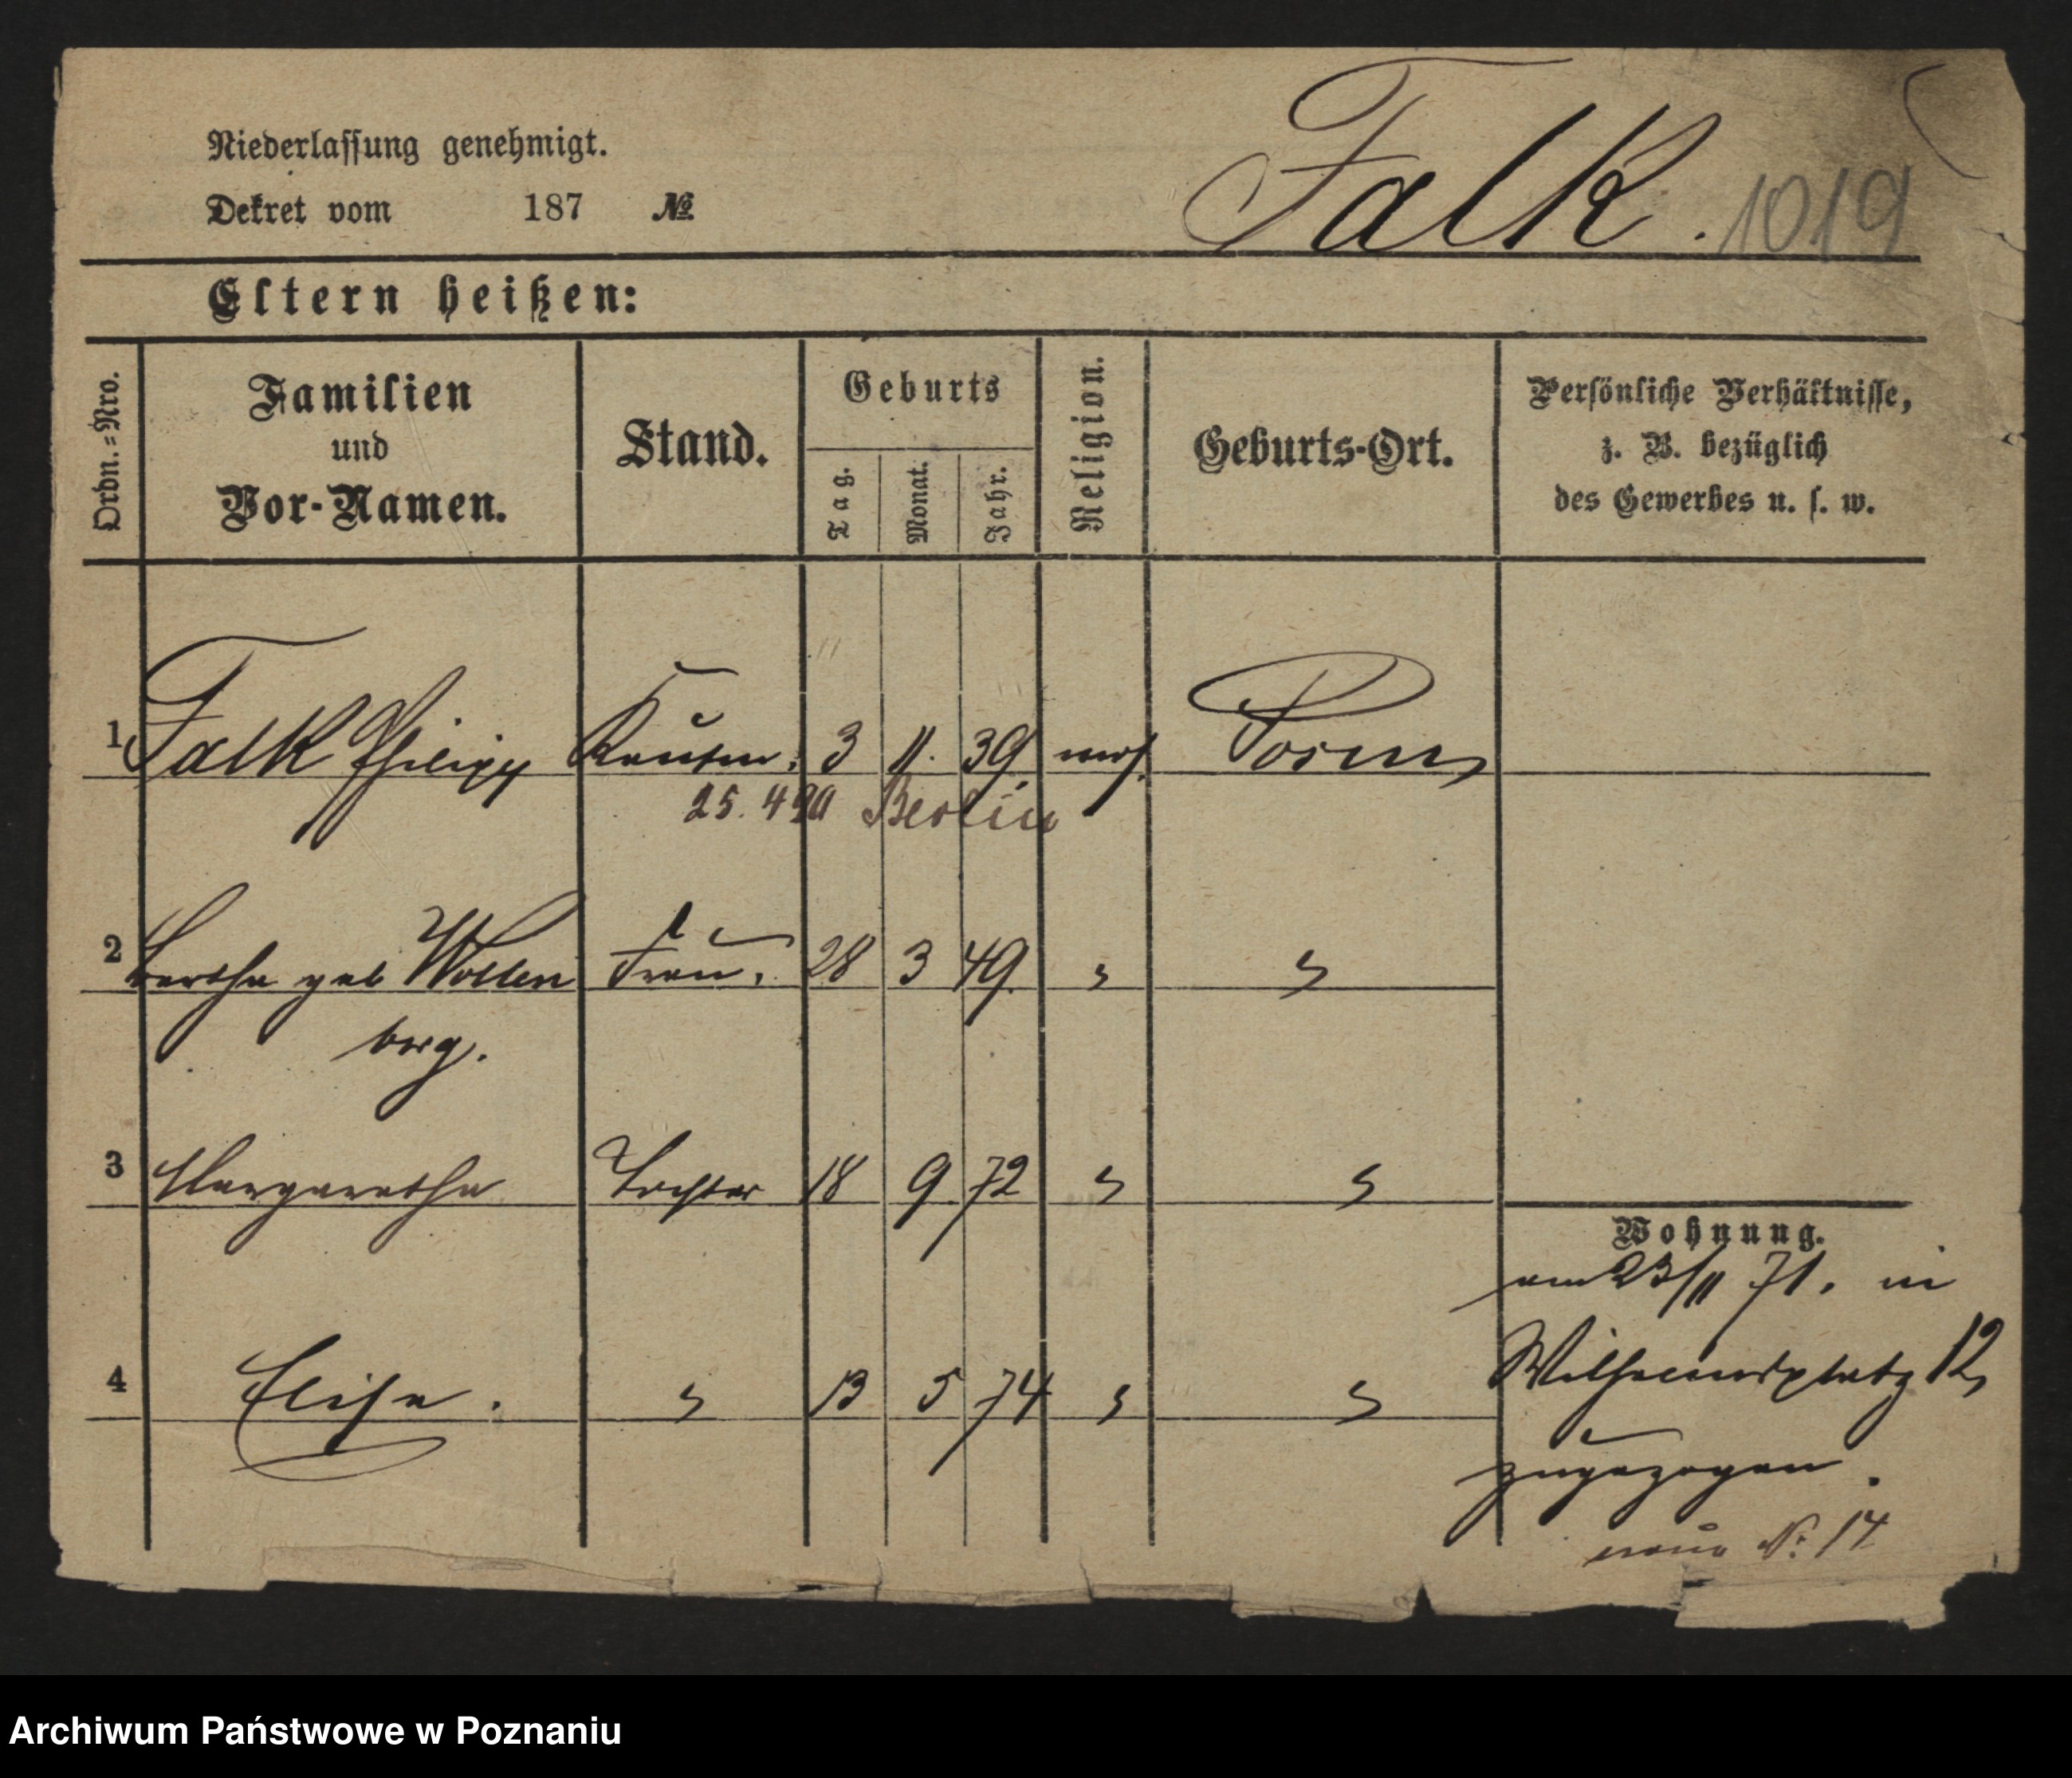 Niederlassung genehmigt.
Dekret vom 187 №
Falk. 1019
Eltern heißen:
Ordn.=Nro.
Familien und Vor-Namen.
Stand.
Geburts
Tag. Monat. Jahr.
Religion.
Geburts-Ort.
Persönliche Verhältnisse,
z. B. bezüglich
des Gewerbes u. s. w.
1 Falk Philipp Kaufm. 3 11. 39 mos. Posen
25. 4 Berlin
2 Bertha geb Wollen Frau. 28 3 49. " "
berg.
3 Margaretha Tochter 18 9 72 " "
4 Elise. " 13 5 74 " "
Wohnung.
am 23/11 71. in
Wilhelmsplatz 12
zugezogen.
neue N: 14
Archiwum Państwowe w Poznaniu